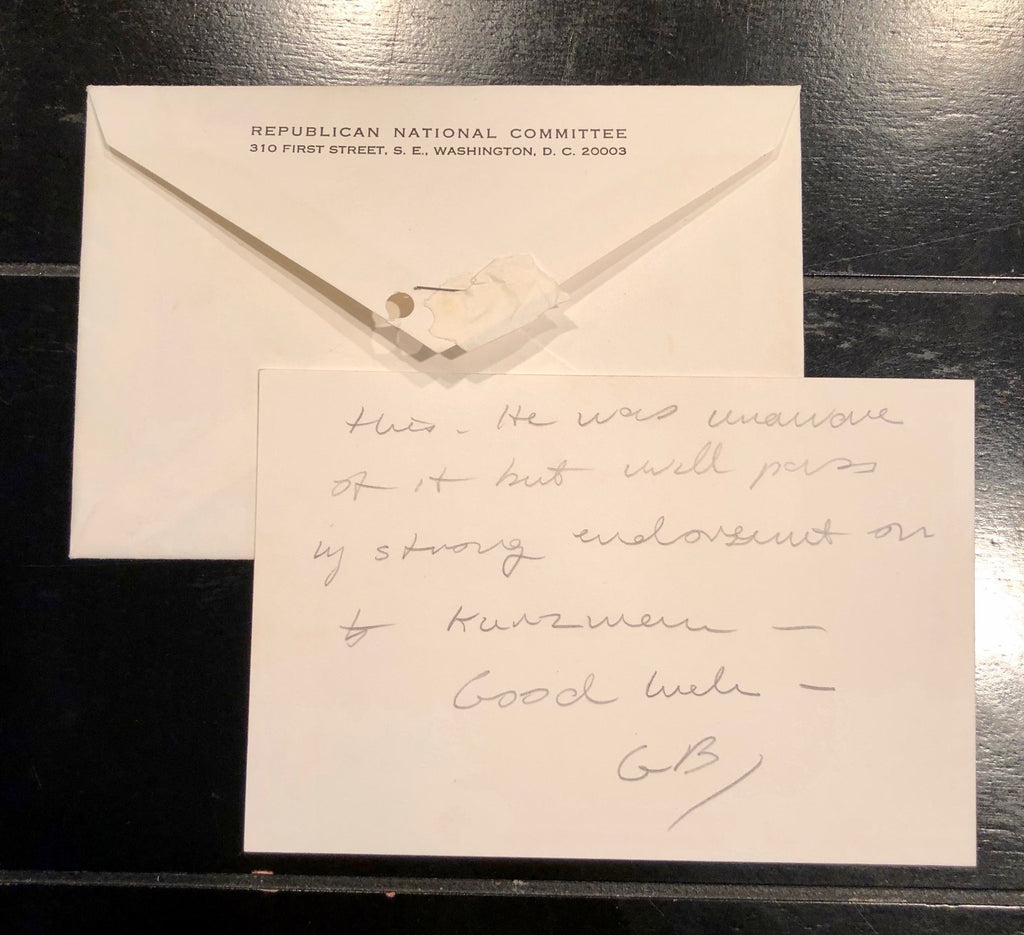 REPUBLICAN NATIONAL COMMITTEE
310 FIRST STREET, S. E., WASHINGTON, D. C. 20003
this. He was unaware
of it but will pass
my strong endorsement on
to Kurzman —
Good luck —
GB